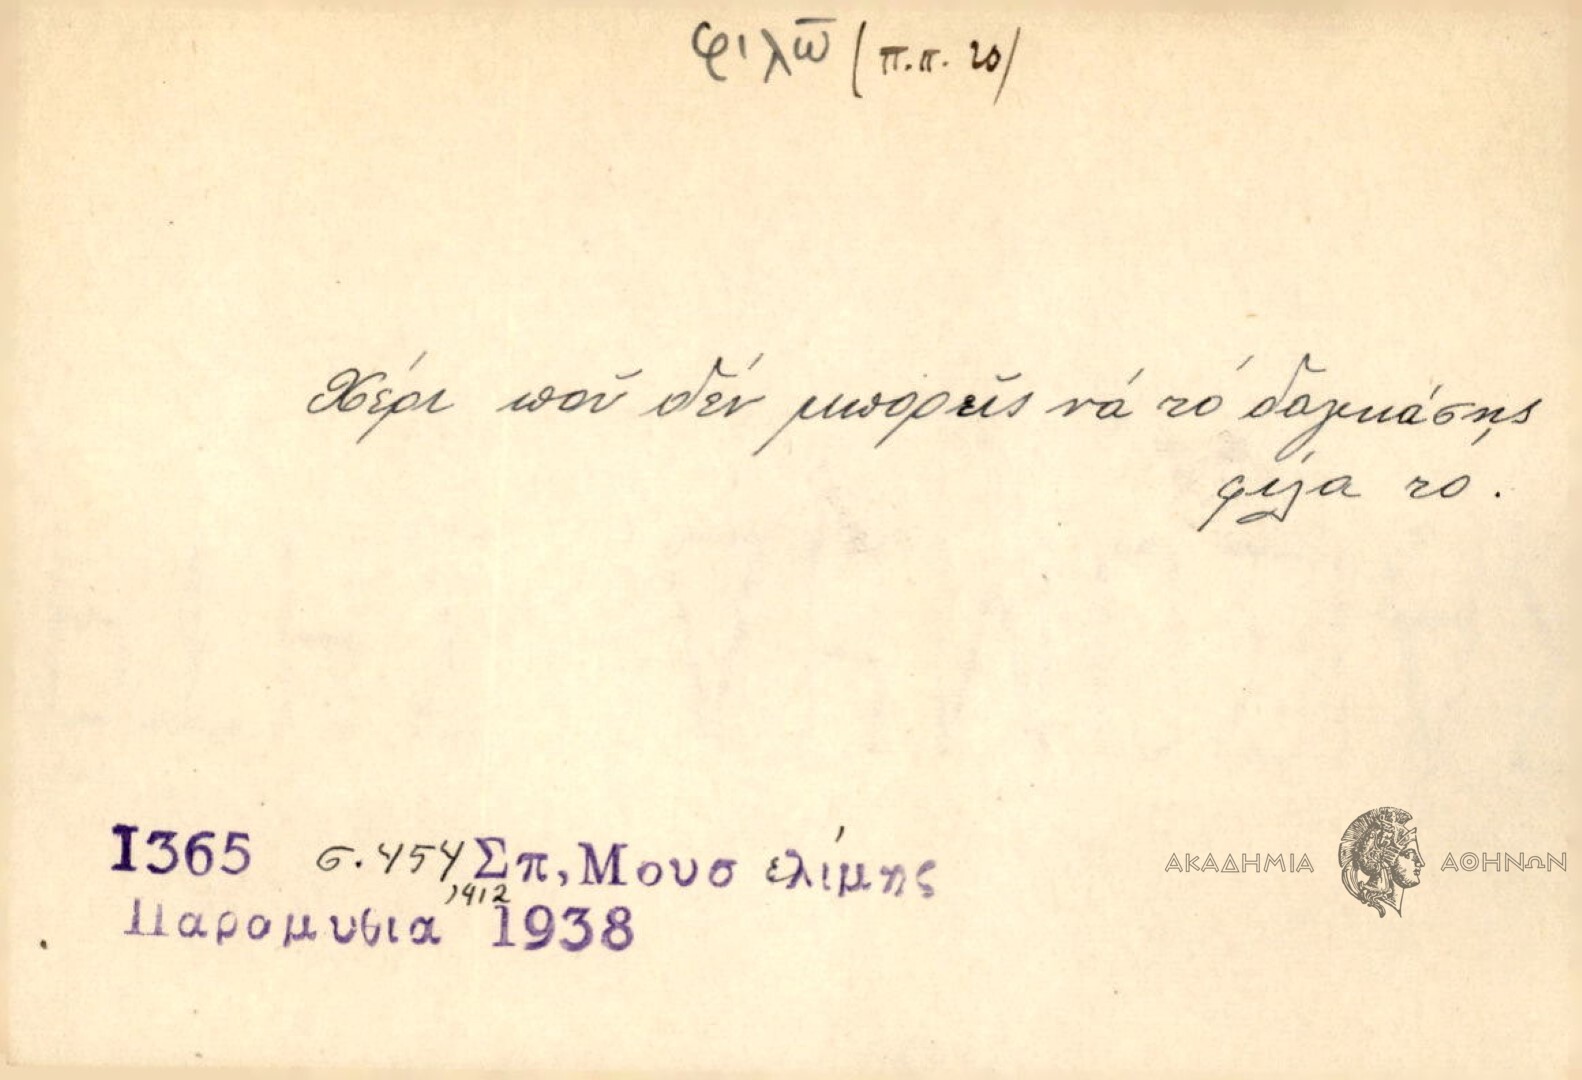 φιλῶ (π.π. 20)
Χέρι ποῦ δέν μπορεῖς νά τό δαγκάσῃς
φίλα τό.
Ι365 σ. 454 Σπ, Μουσελίμης
, 412
Παραμυθιά 1938
ΑΚΑΔΗΜΙΑ ΑΘΗΝΩΝ